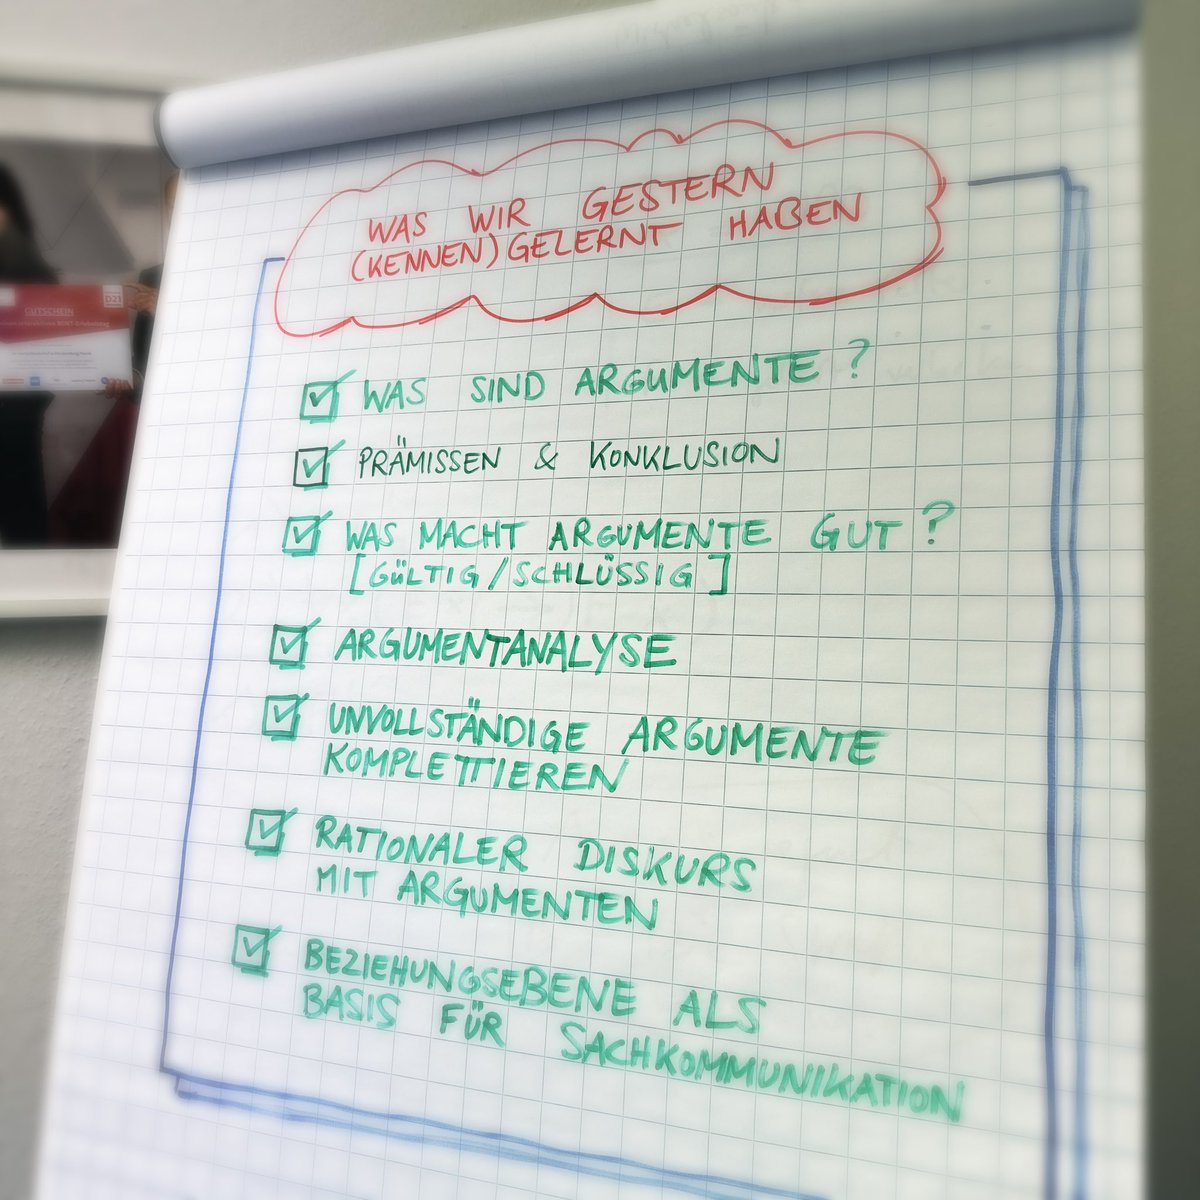 GUTSCHEIN
D21
WAS WIR GESTERN
(KENNEN)GELERNT HABEN
WAS SIND ARGUMENTE?
PRÄMISSEN & KONKLUSION
WAS MACHT ARGUMENTE GUT?
[GÜLTIG/SCHLÜSSIG]
ARGUMENTANALYSE
UNVOLLSTÄNDIGE ARGUMENTE
KOMPLETTIEREN
RATIONALER DISKURS
MIT ARGUMENTEN
BEZIEHUNGSEBENE ALS
BASIS FÜR SACHKOMMUNIKATION